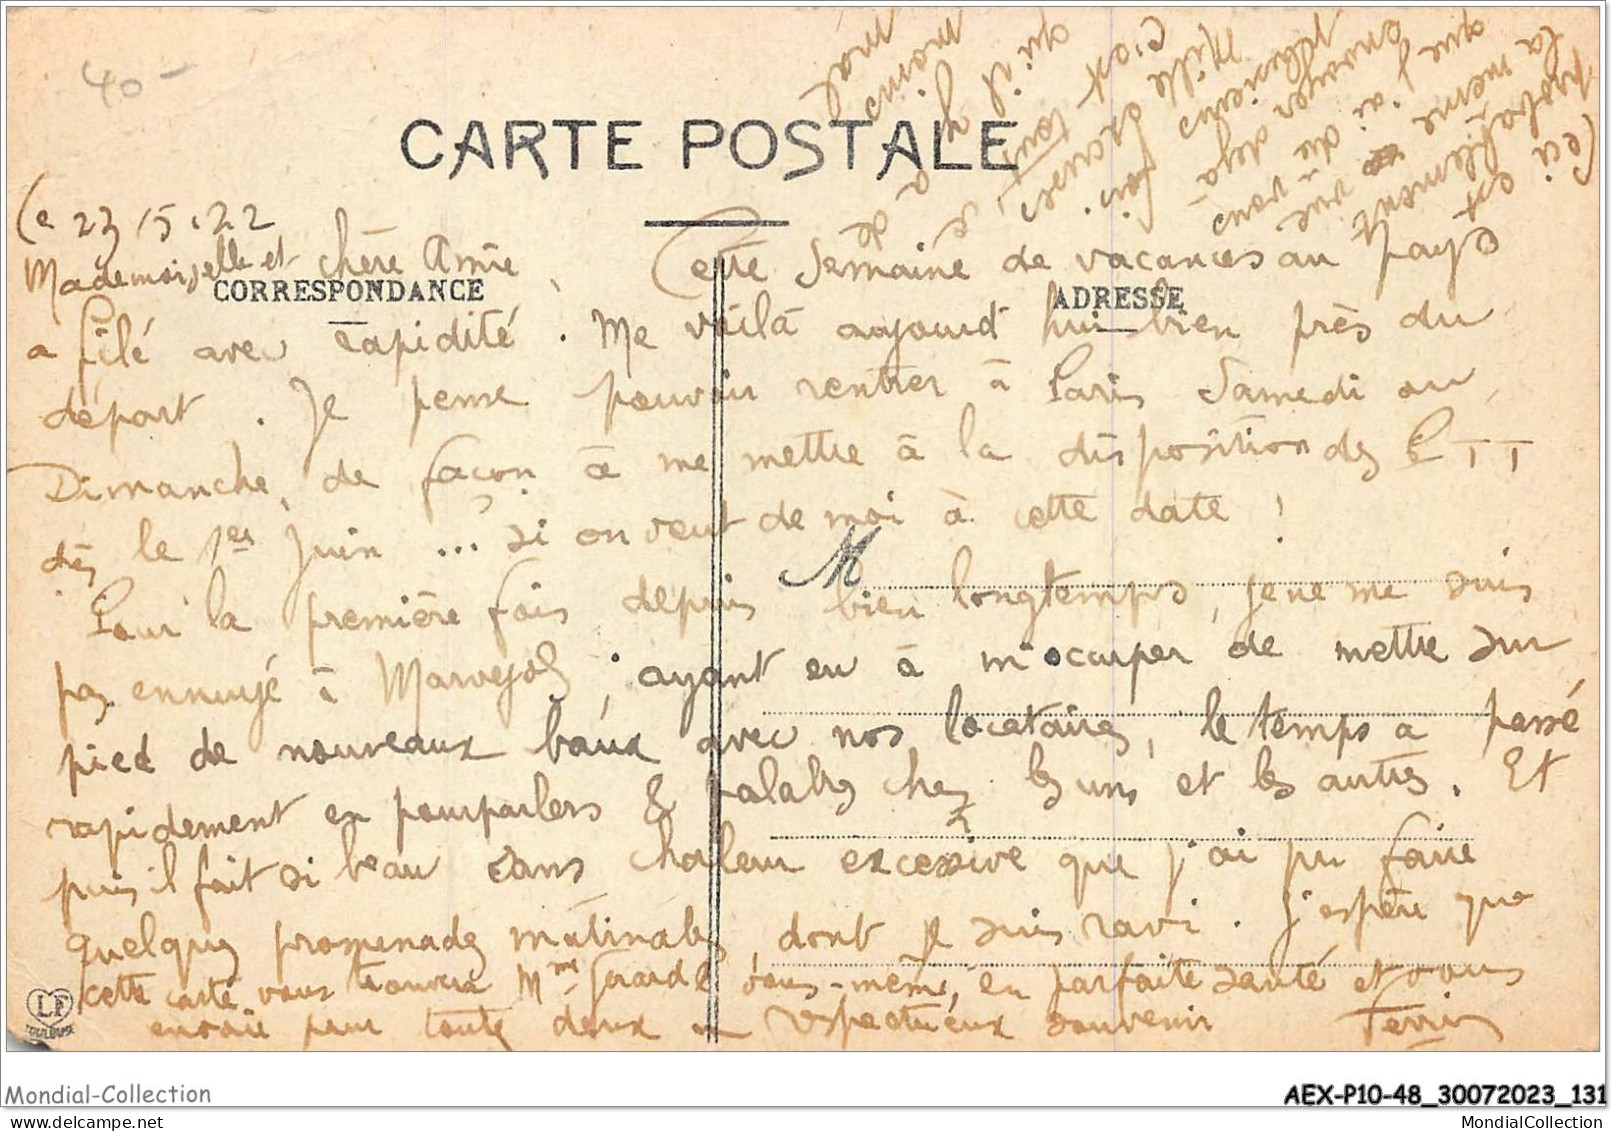 40 -
CARTE POSTALE
Le 23/5/22
Mademoiselle et chère Amie,
CORRESPONDANCE
ADRESSE
Cette Semaine de vacances au pays
a filé avec rapidité. Me voilà aujourd'hui bien près du
départ. Je pense pouvoir rentrer à Paris Samedi ou
Dimanche, de façon à me mettre à la disposition des PTT
dès le 1er Juin ... si on veut de moi à cette date !
M
Pour la première fois depuis bien longtemps, je ne me suis
pas ennuyé à Marvejols ; ayant eu à m'occuper de mettre sur
pied de nouveaux baux avec nos locataires, le temps a passé
rapidement en pourparlers & palabres chez les uns et les autres. Et
puis il fait si beau sans chaleur excessive que j'ai pu faire
quelques promenades matinales dont je suis ravi. J'espère que
cette carte vous trouvera Mme Gérard & vous-même, en parfaite santé et vous
envoie pour toute deux un respectueux souvenir
Ceci est
probablement
la même vue
que j'ai dû vous
envoyer déjà
plusieurs fois.
Mille excuses,
c'est tout
qu'il y a de
moins
LF
TOULOUSE
Mondial-Collection
AEX-P10-48_30072023_131
MondialCollection